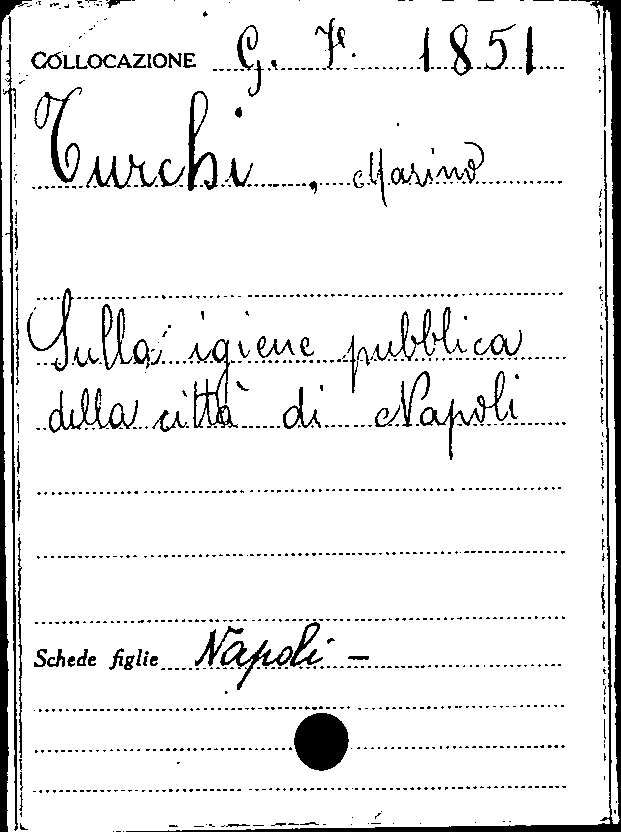 COLLOCAZIONE G. F. 1851
Turchi, Marino
Sulla igiene pubblica
della città di Napoli
Schede figlie Napoli -